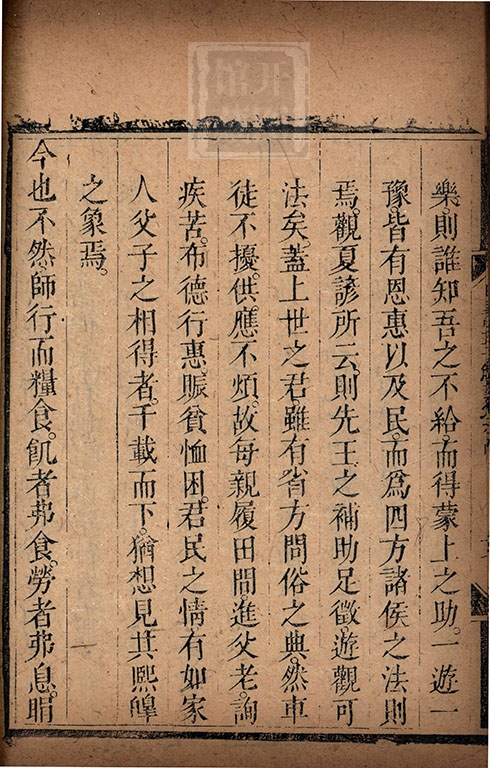 樂則誰知吾之不給而得蒙上之助。一遊一
豫皆有恩惠以及民。而爲四方諸侯之法則
焉。觀夏諺所云。則先王之補助足徵。遊觀可
法矣。蓋上世之君。雖有省方問俗之典。然車
徒不擾。供應不煩。故每親履田間。進父老。詢
疾苦。布德行惠。賑貧恤困。君民之情。有如家
人父子之相得者。千載而下。猶想見其熙皥
之象焉。
今也不然師行而糧食。飢者弗食。勞者弗息。睊